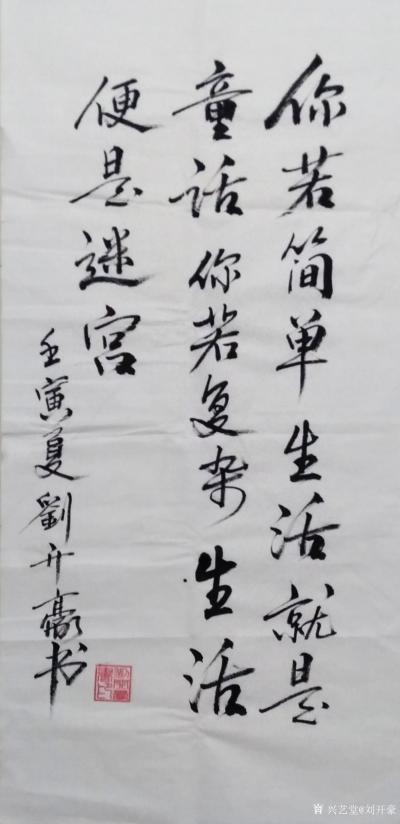 你若简单生活就是
童话你若复杂生活
便是迷宫
壬寅夏劉开豪书
兴艺堂@刘开豪